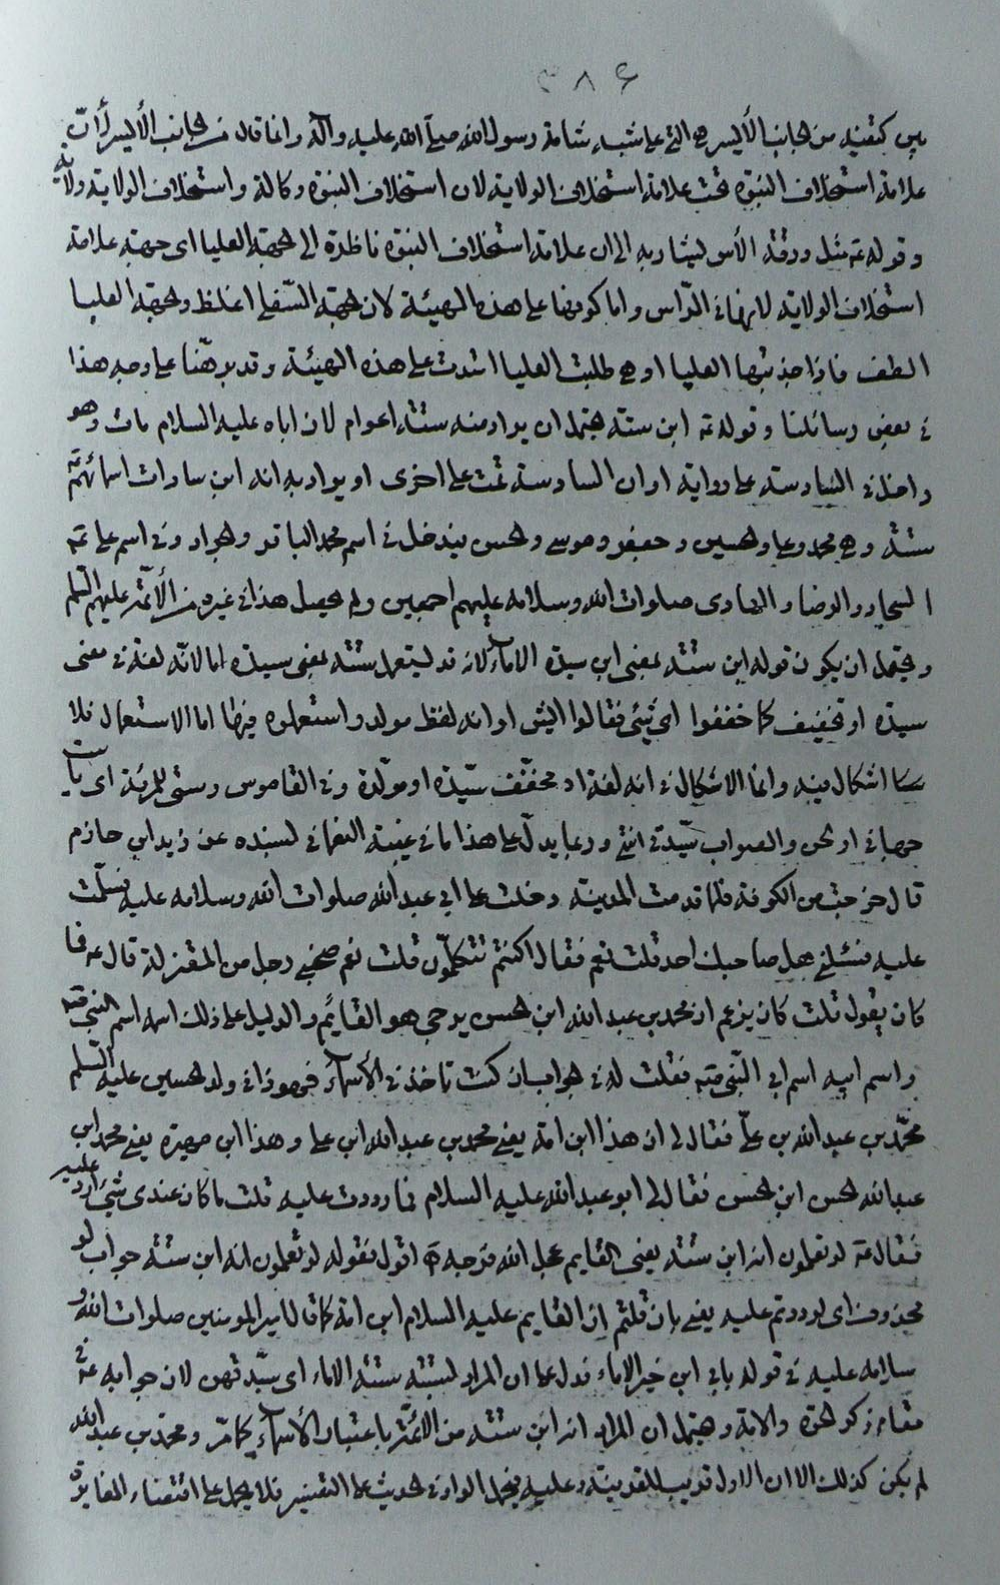 ٣٨۶
بين كتفيه من الجانب الأيسر هي التي على شبه شامة رسول الله صلى الله عليه وآله وانما قال من الجانب الأيسر لأن
علامة استخلاف النبوة تحت علامة استخلاف الولاية لان استخلاف النبوة وكالة واستخلاف الولاية ولاية
وقوله ع مثل ورقة الأس ليشار به الى ان علامة استخلاف النبوة ناظرة الى الجهة العليا اى جهة علامة
استخلاف الولاية لانها في الرأس واما كونها على هذه الهيئة لان الجهة السفلى اغلظ والجهة العليا
الطف فاذا جذبتها العليا او هي طلبت العليا امتدت على هذه الهيئة وقد برهنا على وجه هذا
في بعض رسائلنا وقوله ع ابن ستة يحتمل ان يراد منه ستة اعوام لان اباه عليه السلام مات وهو
داخل في السادسة على رواية او ان السادسة تمت على اخرى او يراد به انه ابن سادات اسمائهم
ستة وهي محمد وعلى والحسين وجعفر وموسى والحسن فيدخل في اسم محمد الباقر والجواد وفي اسم على ع
السجاد والرضا والهادى صلوات الله وسلامه عليهم اجمعين ولم يحصل هذا في غيره من الأئمة عليهم السلم
ويحتمل ان يكون قوله ابن ستة بمعنى ابن سيدة الاماء لانه قد يستعمل ستة بمعنى سيدة اما لانه لغة في معنى
سيدة او تخفيف كما خففوا اى شئ فقالوا ايش او انه لفظ مولد واستعملوه فيها اما الاستعمال فلا
اشكال فيه وانما الاشكال في انه لغة او مخفف سيدة او مولدة وفي القاموس وستى للمرئة اى يا ست
جهاتى او لحن والصواب سيدتى انتهى وربما يدل على هذا ما في غيبة النعمانى بسنده عن زيد ابن حازم
قال خرجت من الكوفة فلما قدمت المدينة دخلت على ابي عبدالله صلوات الله وسلامه عليه فسلمت
عليه فسئلنى هل صاحبك احد قلت نعم فقال اكنتم تتكلمون قلت نعم صحبنى رجل من المعتزلة قال ع فما
كان يقول قلت كان يزعم ان محمد بن عبد الله ابن الحسن يرجى هو القايم والدليل على ذلك اسمه اسم النبى
واسم ابيه اسم ابى النبى فقلت له في الجواب ان كنت تاخذ في الأسماء فهو ذا في ولد الحسين عليه السلم
محمد بن عبد الله بن على فقال لى ان هذا ابن امة يعنى محمد بن عبد الله ابن على وهذا ابن مهيرة يعنى محمد ابن
عبدالله الحسن ابن الحسن فقال لى ابو عبد الله عليه السلام فما رددت عليه قلت ما كان عندى شئ ارد عليه
فقال ع لو تعلمون انه ابن ستة يعنى القايم عجل الله فرجه اقول فقوله لو تعلمون انه ابن ستة جواب لو
محذوف اى لرددتم عليه يعنى بان قلتم ان القايم عليه السلام ابن امة كما قال امير المومنين صلوات الله و
سلامه عليه في قوله بابى ابن خير الاماء فدل على ان المراد بستة ستة الاماء اى سيدتهن لان جوابه ع في
مقام ذكر الحرة والامة ويحتمل ان المراد انه ابن ستة من الائمة باعتبار الأسماء كما مر ومحمد بن عبد الله
لم يكن كذلك الا ان الاول قريب للقرينة وعليه يحمل الوارد في الحديث على التفسير فلا يحمل على اقتضاء المغايرة